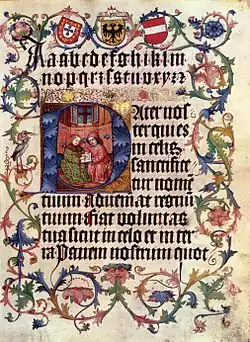 A a b c d e f g h i k l m
n o p q r ı s s t u v x y z z
Pater nos
ter qui es
in celis
sanctifice
tur nomē
tuum adveniat regnū
tuum fiat voluntas
tua sicut in celo et in ter
ra Panem nostrum quot